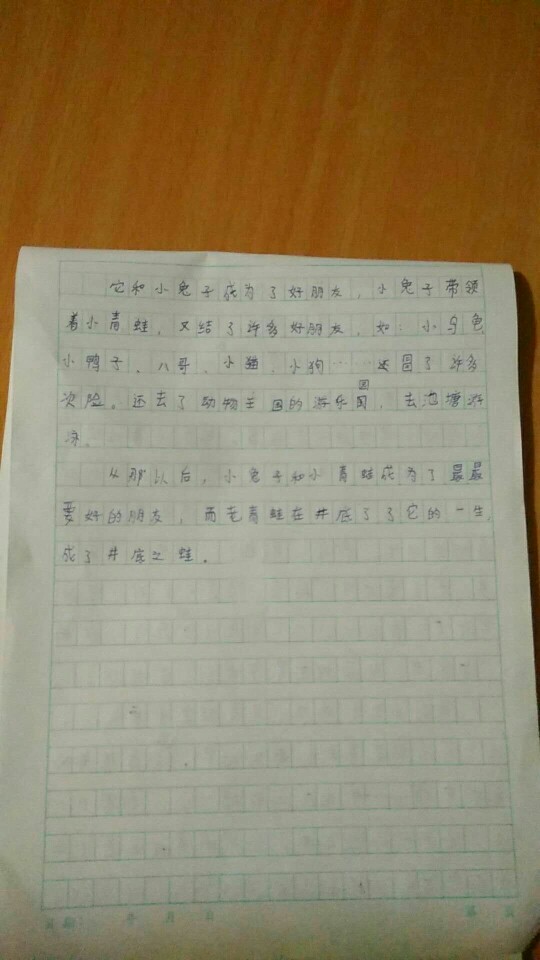 它和小兔子成为了好朋友，小兔子带领
着小青蛙，又结了许多好朋友，如：小乌龟
小鸭子、八哥、小猫、小狗……还冒了许多
次险。还去了动物王国的游乐园，去池塘游
泳。
从那以后，小兔子和小青蛙成为了最最
要好的朋友，而老青蛙在井底了了它的一生，
成了井底之蛙。
年 月 日